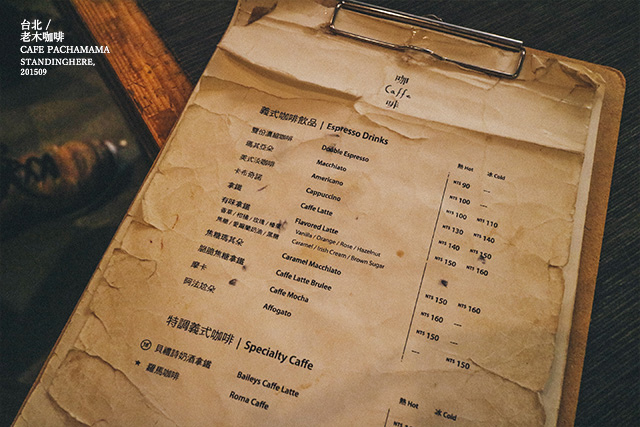 台北 /
老木咖啡
CAFE PACHAMAMA
STANDINGHERE,
201509
咖
Caffa
啡
義式咖啡飲品 | Espresso Drinks
熱 Hot 冰 Cold
雙份濃縮咖啡 Double Espresso NT$ 90 ---
瑪其亞朵 Macchiato NT$ 100 ---
美式淡咖啡 Americano NT$ 100 NT$ 110
卡布奇諾 Cappuccino NT$ 130 NT$ 140
拿鐵 Caffe Latte NT$ 140 NT$ 150
有味拿鐵 Flavored Latte NT$ 150 NT$ 160
香草 / 柑橘 / 玫瑰 / 榛果 Vanilla / Orange / Rose / Hazelnut
焦糖 / 愛爾蘭奶油 / 黑糖 Caramel / Irish Cream / Brown Sugar
焦糖瑪其朵 Caramel Macchiato NT$ 150 NT$ 160
焦糖拿鐵 Caffe Latte Brulee NT$ 160 ---
摩卡 Caffe Mocha NT$ 150 ---
Affogato --- NT$ 150
特調義式咖啡 | Specialty Caffe
熱 Hot 冰 Cold
貝禮詩奶酒拿鐵 Baileys Caffe Latte
★ 羅馬咖啡 Roma Caffe